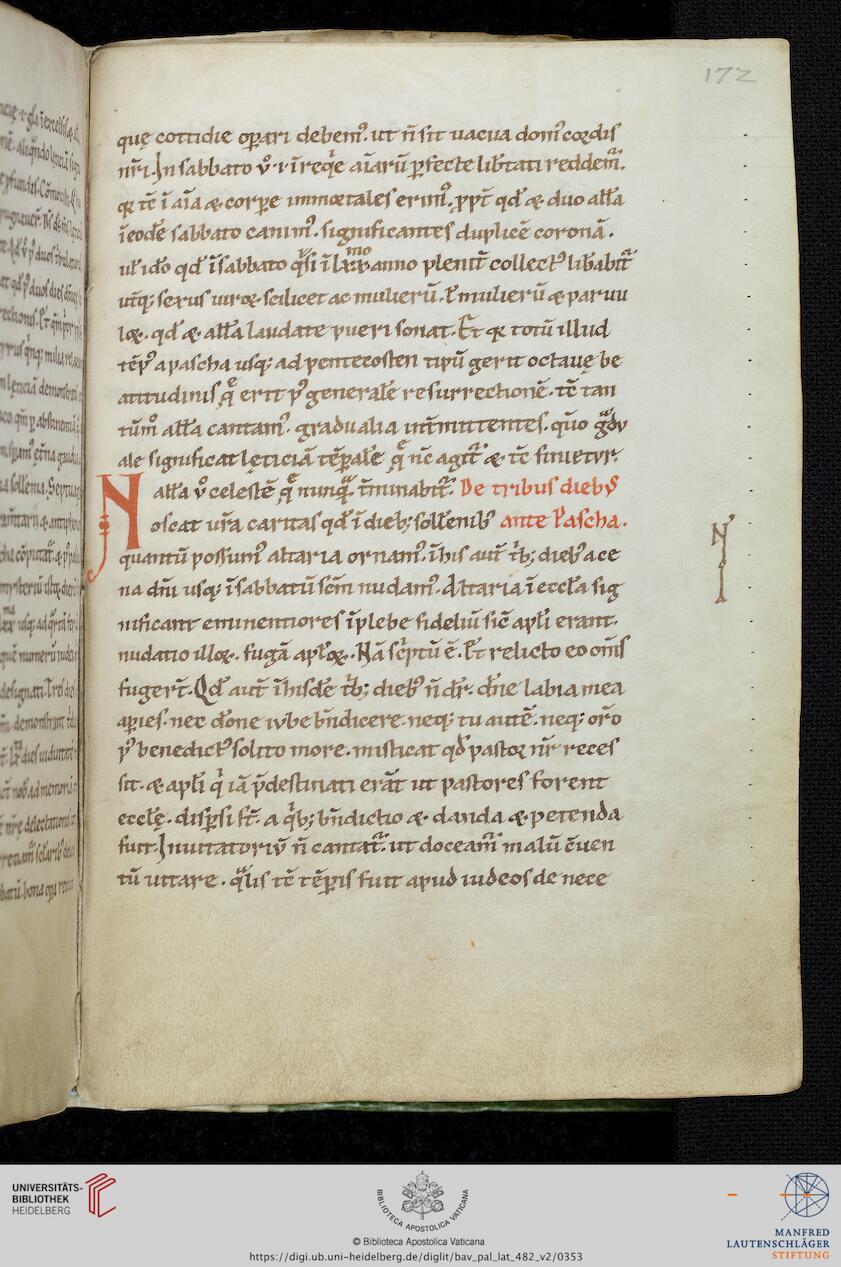 172
quę cottidie oꝑari debemꝰ. ut n̄ sit uacua domꝰ cordis
nr̄i. In sabbato v̊ .i. ī req̇e aīarū ꝑfecte lib̄tati reddem̄.
qr tc̄ ī aīa & corꝑe inmortales erimꝰ. ꝓpt̄ qd̄ & duo all̄a
ī eodē sabbato canimꝰ. significantes duplicē coronā.
ul̄ idō qd̄ ī sabbato q̇si ī lxxmo anno plenit̄ collectꝰ lib̄abit̄
utq; sexus uiroꝝ scilicet ac mulierū. ł mulierū & paruu
loꝝ. qd̄ & all̄a laudate pueri sonat. Et qr totū illud
tēpꝰ a pascha usq; ad pentecosten tipū gerit octauę be
atitudinis q̄ erit pꝰ generalē resurrectionē. tc̄ tan
tūm̊ all̄a cantamꝰ. gradualia int̄mittentes. qm̄ gͣdu
ale significat lęticiā tēꝑalē q̄ nc̄ agit̄ & tc̄ finietur
all̄a v̊ celestē q̄ nunqͣ t̄minabit̄. De tribus diebꝰ
Noscat ur̄a caritas qd̄ ī dieb; soll̄enibꝰ ante Pascha.
quantū possumꝰ altaria ornamꝰ. ī his aut̄ tͥb; diebꝰ a ce
na dn̄i usq; ī sabbatū sc̄m nudamꝰ. Altaria ī eccl̄a sig
nificant eminentiores ī plebe fideliū sic̄ apl̄i erant.
nudatio illoꝝ. fugā apl̄oꝝ. Nā sc̄ptū ē. Et relicto eo om̄s
fuger̄t. Qd̄ aut̄ ī hisdē tͥb; diebꝰ n̄ dr̄. dn̄e labia mea
aꝑies. nec dōne iube bn̄dicere. neq; tu autē. neq; orō
pꝰ benedictꝰ solito more. misticat qd̄ pastor nr̄ reces
sit. & apl̄i qͥ iā p̄destinati erāt ut pastores forent
ecclę. disꝑsi st̄. a qͥb; bn̄dictio & danda & petenda
fuit. Inuitatoriū n̄ cantat̄. ut doceam̄ malū ꝯuen
tū uitare. qͣlis tc̄ tēꝑis fuit apud iudeos de nece
UNIVERSITÄTS-
BIBLIOTHEK
HEIDELBERG
BIBLIOTECA APOSTOLICA VATICANA
© Biblioteca Apostolica Vaticana
https://digi.ub.uni-heidelberg.de/diglit/bav_pal_lat_482_v2/0353
MANFRED
LAUTENSCHLÄGER
STIFTUNG